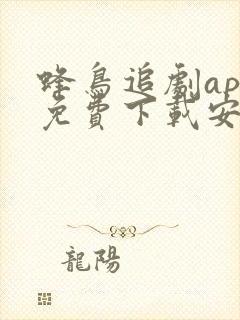 蜂鳥追劇ap
免費下載安
龍陽